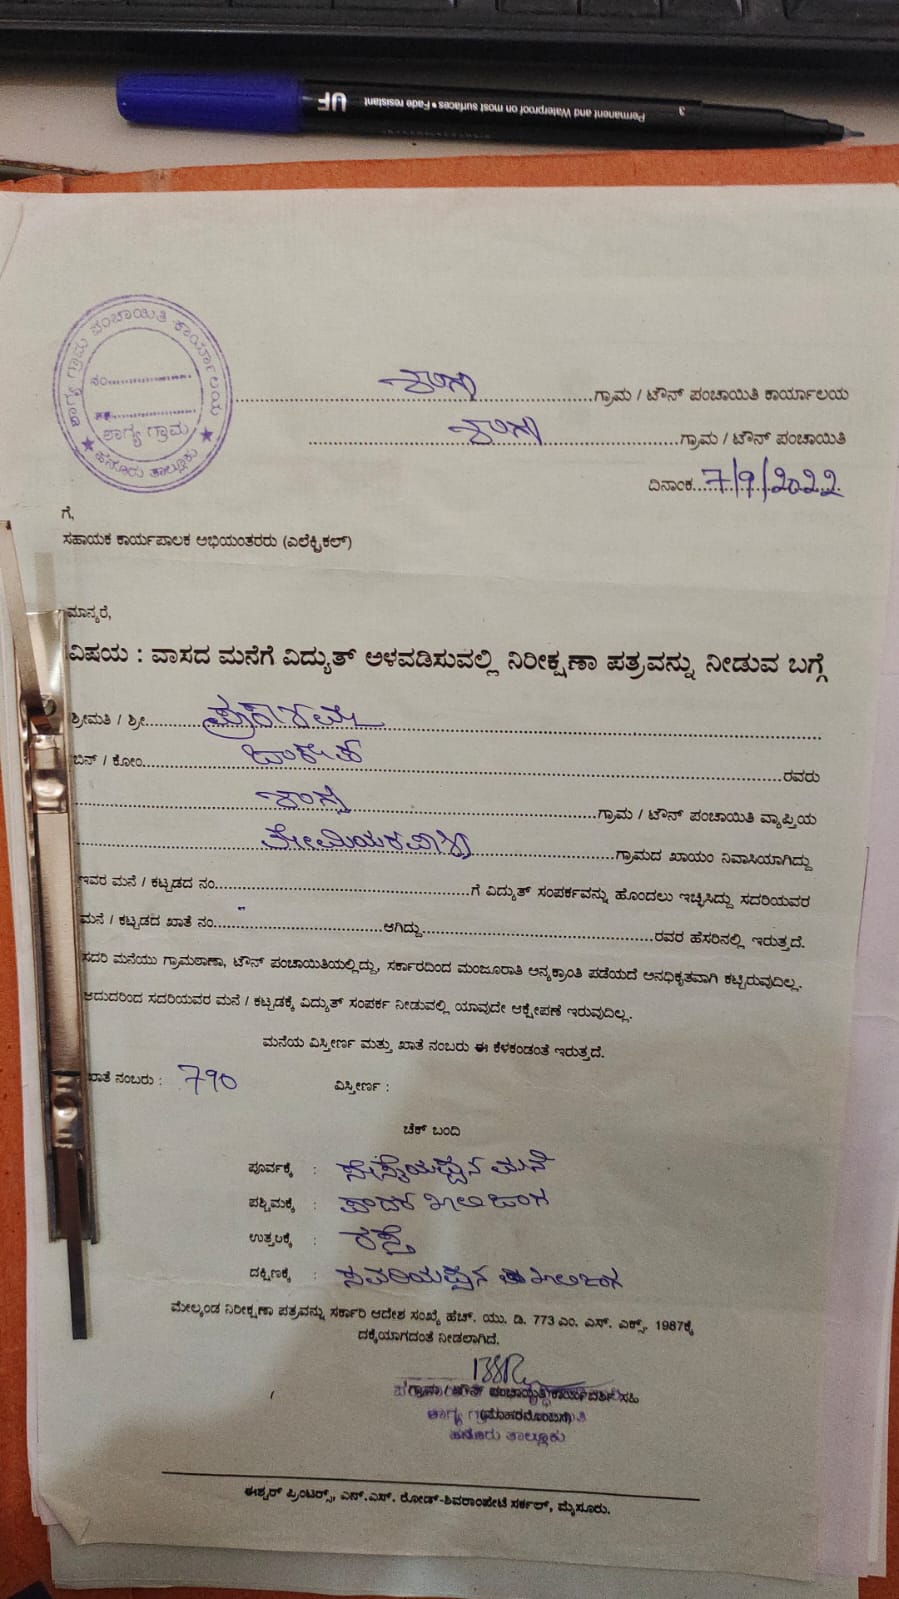 UF Permanent and Waterproof on most surfaces • Fade resistant 3
ಶಾಗ್ಯ ಗ್ರಾಮ ಪಂಚಾಯಿತಿ ಕಾರ್ಯಾಲಯ
ನಂ
ಶಾಗ್ಯ ಗ್ರಾಮ
ಹನೂರು ತಾಲ್ಲೂಕು
ಶಾಗ್ಯ ಗ್ರಾಮ / ಟೌನ್ ಪಂಚಾಯಿತಿ ಕಾರ್ಯಾಲಯ
ಶಾಗ್ಯ ಗ್ರಾಮ / ಟೌನ್ ಪಂಚಾಯಿತಿ
ದಿನಾಂಕ 7/9/2022
ಗೆ,
ಸಹಾಯಕ ಕಾರ್ಯಪಾಲಕ ಅಭಿಯಂತರರು (ಎಲೆಕ್ಟ್ರಿಕಲ್)
ಮಾನ್ಯರೆ,
ವಿಷಯ : ವಾಸದ ಮನೆಗೆ ವಿದ್ಯುತ್ ಅಳವಡಿಸುವಲ್ಲಿ ನಿರೀಕ್ಷಣಾ ಪತ್ರವನ್ನು ನೀಡುವ ಬಗ್ಗೆ
ಶ್ರೀಮತಿ / ಶ್ರೀ
ಬಿನ್ / ಕೋಂ ರವರು
ಶಾಗ್ಯ ಗ್ರಾಮ / ಟೌನ್ ಪಂಚಾಯಿತಿ ವ್ಯಾಪ್ತಿಯ
ಗ್ರಾಮದ ಖಾಯಂ ನಿವಾಸಿಯಾಗಿದ್ದು
ಇವರ ಮನೆ / ಕಟ್ಟಡದ ನಂ ಗೆ ವಿದ್ಯುತ್ ಸಂಪರ್ಕವನ್ನು ಹೊಂದಲು ಇಚ್ಛಿಸಿದ್ದು ಸದರಿಯವರ
ಮನೆ / ಕಟ್ಟಡದ ಖಾತೆ ನಂ ಆಗಿದ್ದು ರವರ ಹೆಸರಿನಲ್ಲಿ ಇರುತ್ತದೆ.
ಸದರಿ ಮನೆಯು ಗ್ರಾಮಠಾಣಾ, ಟೌನ್ ಪಂಚಾಯಿತಿಯಲ್ಲಿದ್ದು, ಸರ್ಕಾರದಿಂದ ಮಂಜೂರಾತಿ ಅನ್ಯಕ್ರಾಂತಿ ಪಡೆಯದೆ ಅನಧಿಕೃತವಾಗಿ ಕಟ್ಟಿರುವುದಿಲ್ಲ.
ಆದುದರಿಂದ ಸದರಿಯವರ ಮನೆ / ಕಟ್ಟಡಕ್ಕೆ ವಿದ್ಯುತ್ ಸಂಪರ್ಕ ನೀಡುವಲ್ಲಿ ಯಾವುದೇ ಆಕ್ಷೇಪಣೆ ಇರುವುದಿಲ್ಲ.
ಮನೆಯ ವಿಸ್ತೀರ್ಣ ಮತ್ತು ಖಾತೆ ನಂಬರು ಈ ಕೆಳಕಂಡಂತೆ ಇರುತ್ತದೆ.
ಖಾತೆ ನಂಬರು : 790 ವಿಸ್ತೀರ್ಣ :
ಚೆಕ್ ಬಂದಿ
ಪೂರ್ವಕ್ಕೆ : ಮನೆ
ಪಶ್ಚಿಮಕ್ಕೆ : ಖಾಲಿ ಜಾಗ
ಉತ್ತರಕ್ಕೆ : ರಸ್ತೆ
ದಕ್ಷಿಣಕ್ಕೆ : ಸವರಿಯಪ್ಪನ ಖಾಲಿ ಜಾಗ
ಮೇಲ್ಕಂಡ ನಿರೀಕ್ಷಣಾ ಪತ್ರವನ್ನು ಸರ್ಕಾರಿ ಆದೇಶ ಸಂಖ್ಯೆ ಹೆಚ್. ಯು. ಡಿ. 773 ಎಂ. ಎಸ್. ಎಕ್ಸ್. 1987ಕ್ಕೆ
ದಕ್ಕೆಯಾಗದಂತೆ ನೀಡಲಾಗಿದೆ.
ಗ್ರಾಮ / ಟೌನ್ ಪಂಚಾಯ್ತಿ ಕಾರ್ಯದರ್ಶಿ ಸಹಿ
ಶಾಗ್ಯ (ಮೊಹರಿನೊಂದಿಗೆ)
ಹನೂರು ತಾಲ್ಲೂಕು
ಈಶ್ವರ್ ಪ್ರಿಂಟರ್ಸ್, ಎನ್.ಎಸ್. ರೋಡ್-ಶಿವರಾಂಪೇಟೆ ಸರ್ಕಲ್, ಮೈಸೂರು.